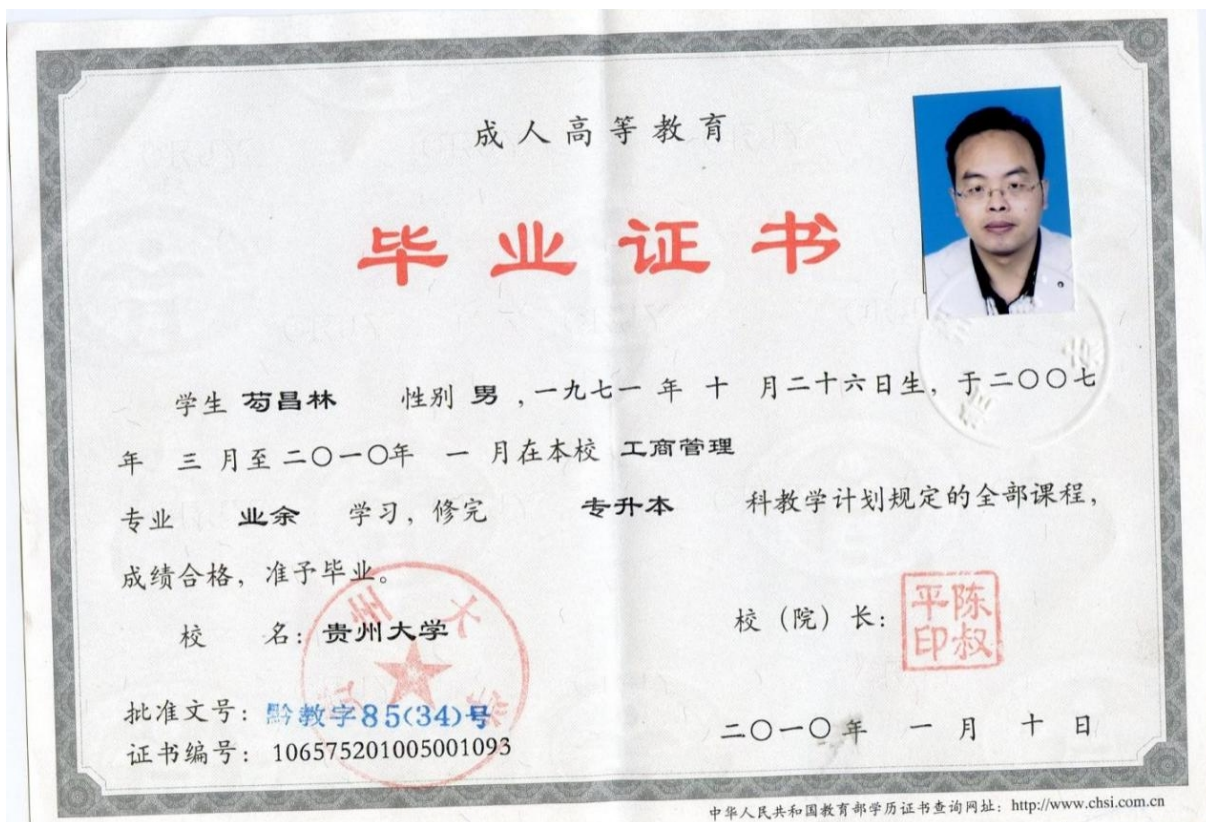 成人高等教育
毕业证书
学生 苟昌林 性别 男 ,一九七一 年 十 月二十六日生, 于二〇〇七
年 三 月至二〇一〇年 一 月在本校 工商管理
专业 业余 学习, 修完 专升本 科教学计划规定的全部课程,
成绩合格, 准予毕业。
校 名: 贵州大学
校（院）长:
陈叔平印
批准文号: 黔教字85(34)号
证书编号: 106575201005001093
二〇一〇年 一 月 十 日
中华人民共和国教育部学历证书查询网址: http://www.chsi.com.cn